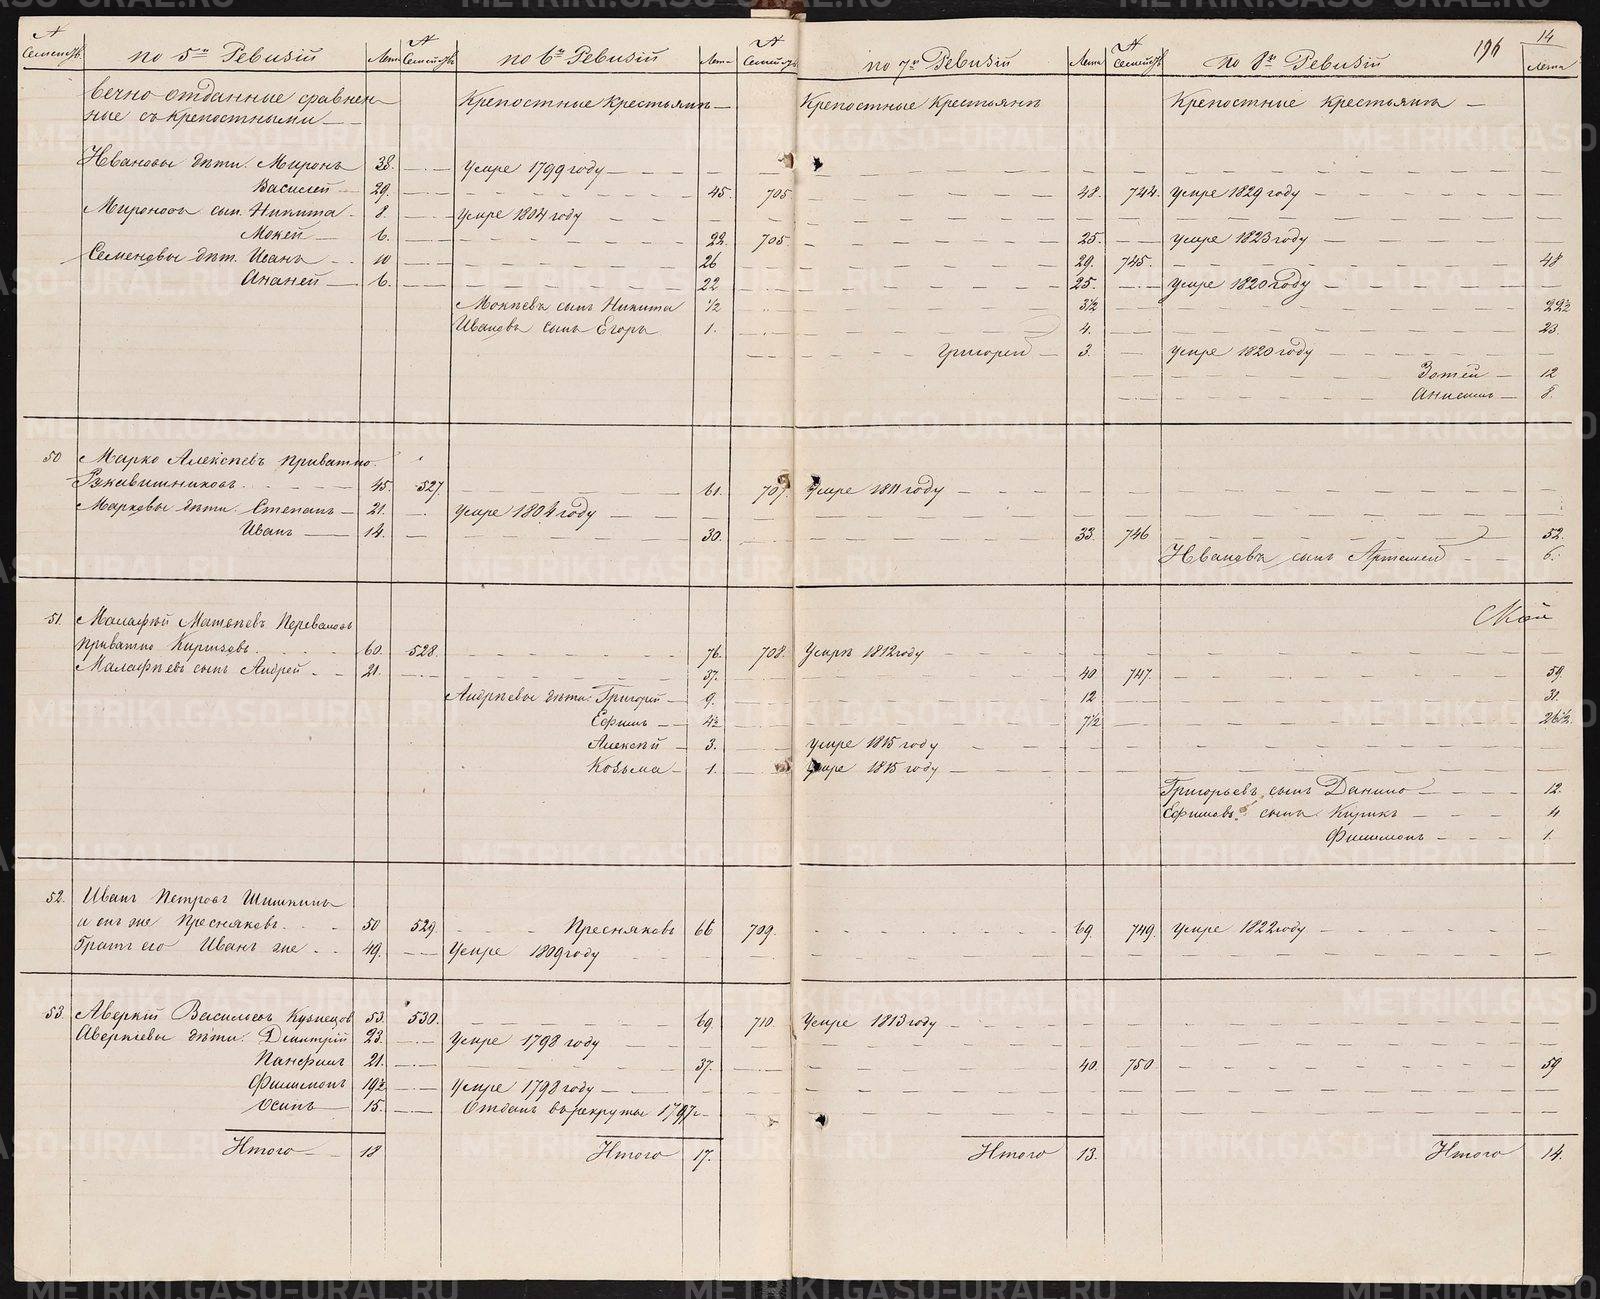 № Семействъ. по 5й Ревизіи Лета № Семействъ по 6й Ревизіи Лета № Семействъ по 7й Ревизіи Лета № Семействъ По 8й Ревизіи 196 14 Лета
вечно отданные сравнен- Крепостные Крестьянъ — Крепостные Крестьянъ Крепостные Крестьянъ —
ные съ крепостными —
Ивановы дѣти. Миронъ 38. умре 1799 году
Василей 29. 45. 705 48. 744. умре 1829 году
Мироновъ сын. Никита 8. умре 1804 году
Мокей 6. 22. 705. 25. умре 1823 году
Семеновы дѣт. Иванъ 10 26 29. 745. 48
Ананей 6. 22 25. умре 1820 году
Мокѣевъ сынъ Никита 1/2 3 1/2 22 1/2
Ивановъ сынъ Егоръ 1. 4. 23.
Григорей 3. умре 1820 году
Зотей 12
Анисимъ 8.
50 Марко Алексѣевъ приватно
Рукавишниковъ 45. 527. 61. 707. Умре 1811 году
Марковы дѣти. Степанъ 21. умре 1804 году
Иванъ 14. 30. 33. 746 52.
Ивановъ сынъ Артемей 6.
51. Малафѣй Матвѣевъ Переваловъ Ской
приватно Киргизовъ 60. 528. 76. 708. Умре 1812 году
Малафѣевъ сынъ Андрей 21. 37. 40 747. 59.
Андрѣевы дѣти. Григорій 9. 12 31.
Ефимъ 4 1/2 7 1/2 26 1/2
Алексѣй 3. умре 1815 году
Козьма 1. умре 1815 году
Григорьевъ сынъ Данило 12.
Ефимовъ сынъ Кирикъ 4
Филимонъ 1.
52. Иванъ Петровъ Шишкинъ
и онъ же Пресняковъ 50 529. Пресняковъ 66 709. 69. 749. умре 1822 году
Братъ его Иванъ же 49. Умре 1809 году
53. Аверкій Васильевъ Кузнецовъ 53. 530. 69. 710. Умре 1813 году
Аверкіевы дѣти. Дмитрій 23. умре 1798 году
Панфилъ 21. 37. 40. 750 59
Филимонъ 19 1/2 Умре 1798 году
Осипъ 15. Отданъ въ рекруты 1797 г.
Итого 18 Итого 17. Итого 13. Итого 14.
METRIKI.GASO-URAL.RU